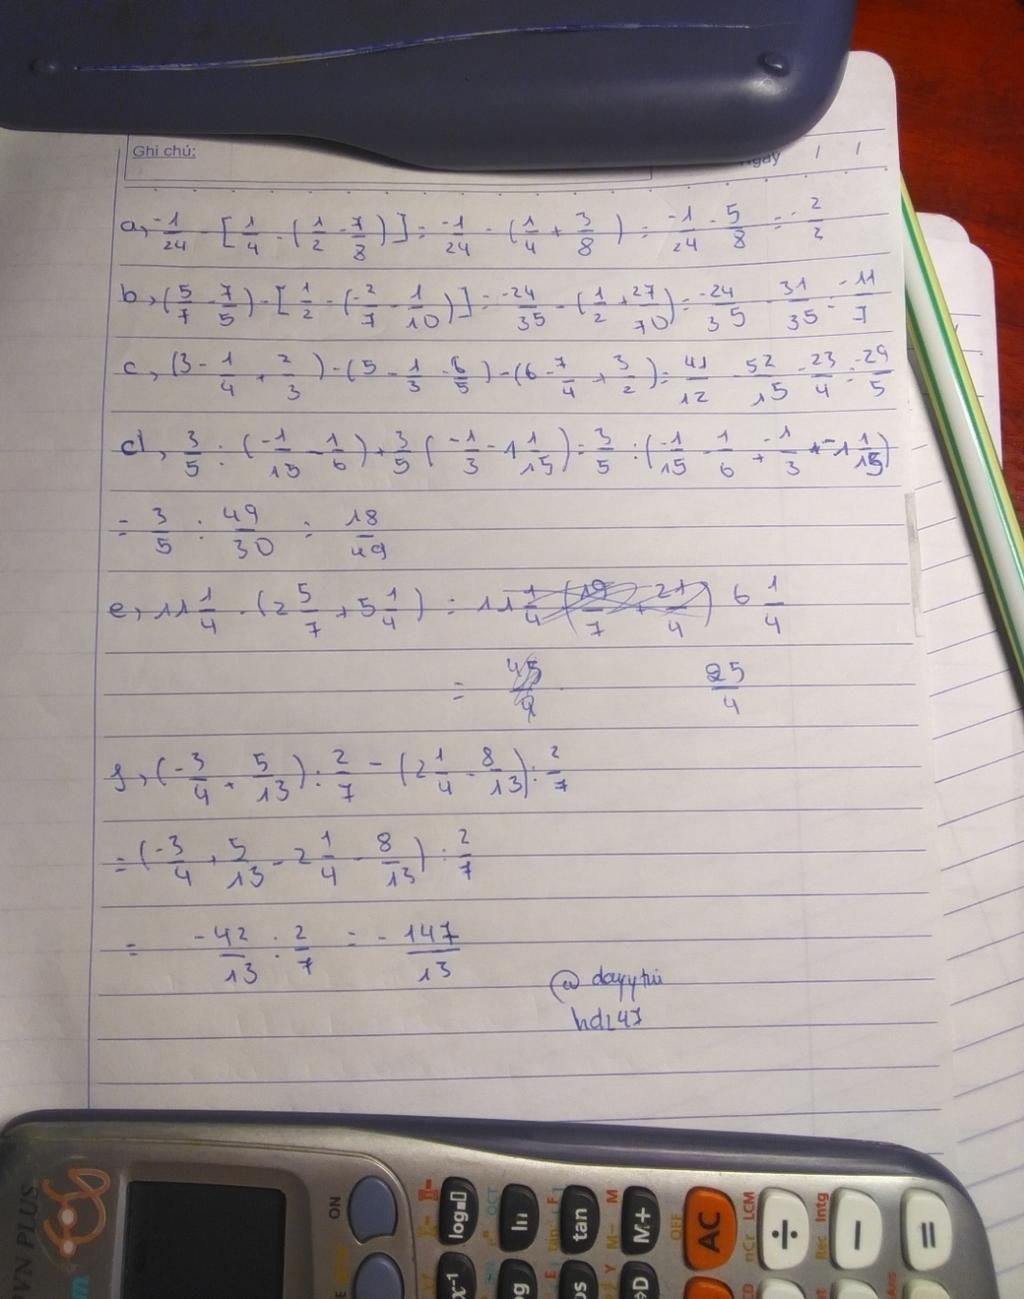 Ghi chú:
Ngày / /
a, -1/24 - [1/4 - (1/2 - 7/8)] = -1/24 - (1/4 + 3/8) = -1/24 - 5/8 = -2/3
b, (5/7 - 7/5) - [1/2 - (-2/7 - 1/10)] = -24/35 - (1/2 + 27/70) = -24/35 - 31/35 = -11/7
c, (3 - 1/4 + 2/3) - (5 - 1/3 - 6/5) - (6 - 7/4 + 3/2) = 41/12 - 52/15 - 23/4 = -29/5
d, 3/5 : (-1/15 - 1/6) + 3/5 (-1/3 - 1 1/15) = 3/5 : (-1/15 - 1/6 + -1/3 - 1 1/15)
= 3/5 : 49/30 = 18/49
e, 11 1/4 - (2 5/7 + 5 1/4) = 11 1/4 (19/7 + 21/4) 6 1/4
= 45/4 25/4
f, (-3/4 + 5/13) : 2/7 - (2 1/4 - 8/13) : 2/7
= (-3/4 + 5/13 - 2 1/4 - 8/13) : 2/7
= -42/13 : 2/7 = -147/13
VN PLUS
ON
log
ln
tan
M+
M
M-
OCT
OFF
AC
LCM
nCr
÷
Intg
Rec
−
=
x-1